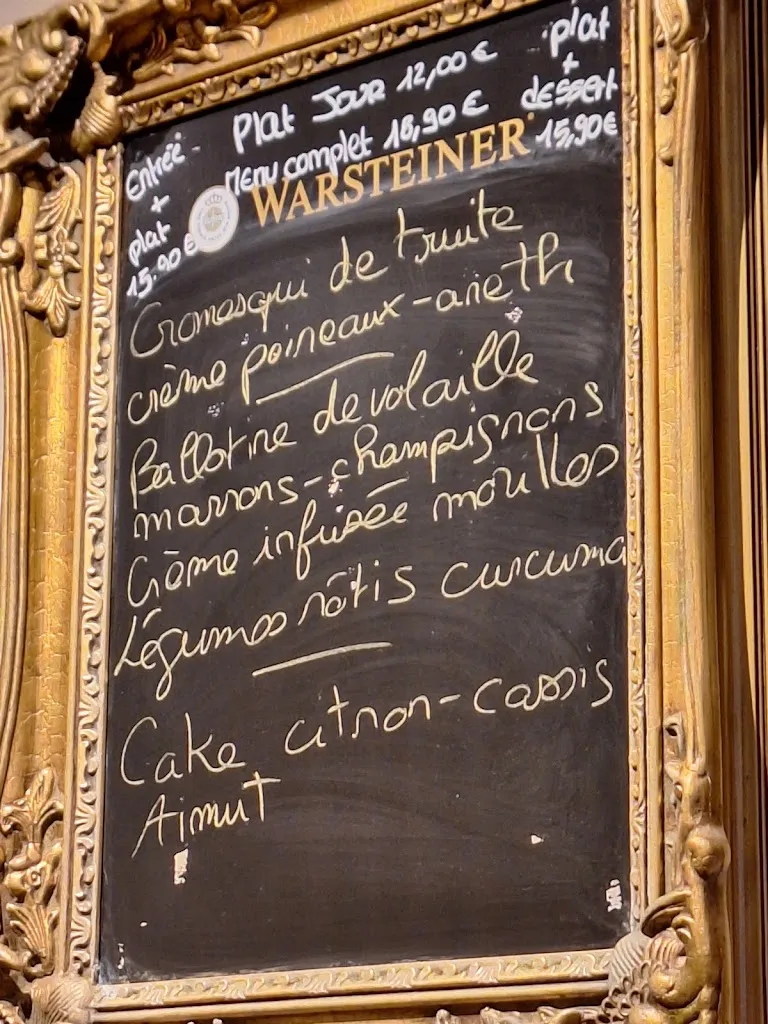 Entrée
+
plat
15.90€
Plat Jour 12,00€
Menu complet 18,90€
plat
+
dessert
15,90€
WARSTEINER
Cromesqui de truite
crème poireaux-aneth
Ballotine de volaille
marrons-champignons
Crème infusée morilles
Légumes rôtis curcuma
Cake citron-cassis
Azimut